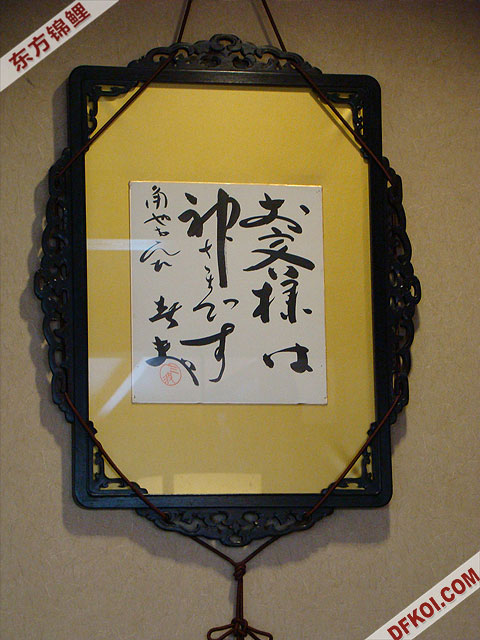 东方锦鲤
お客様は
神さまです
春夫
DFKOI.COM